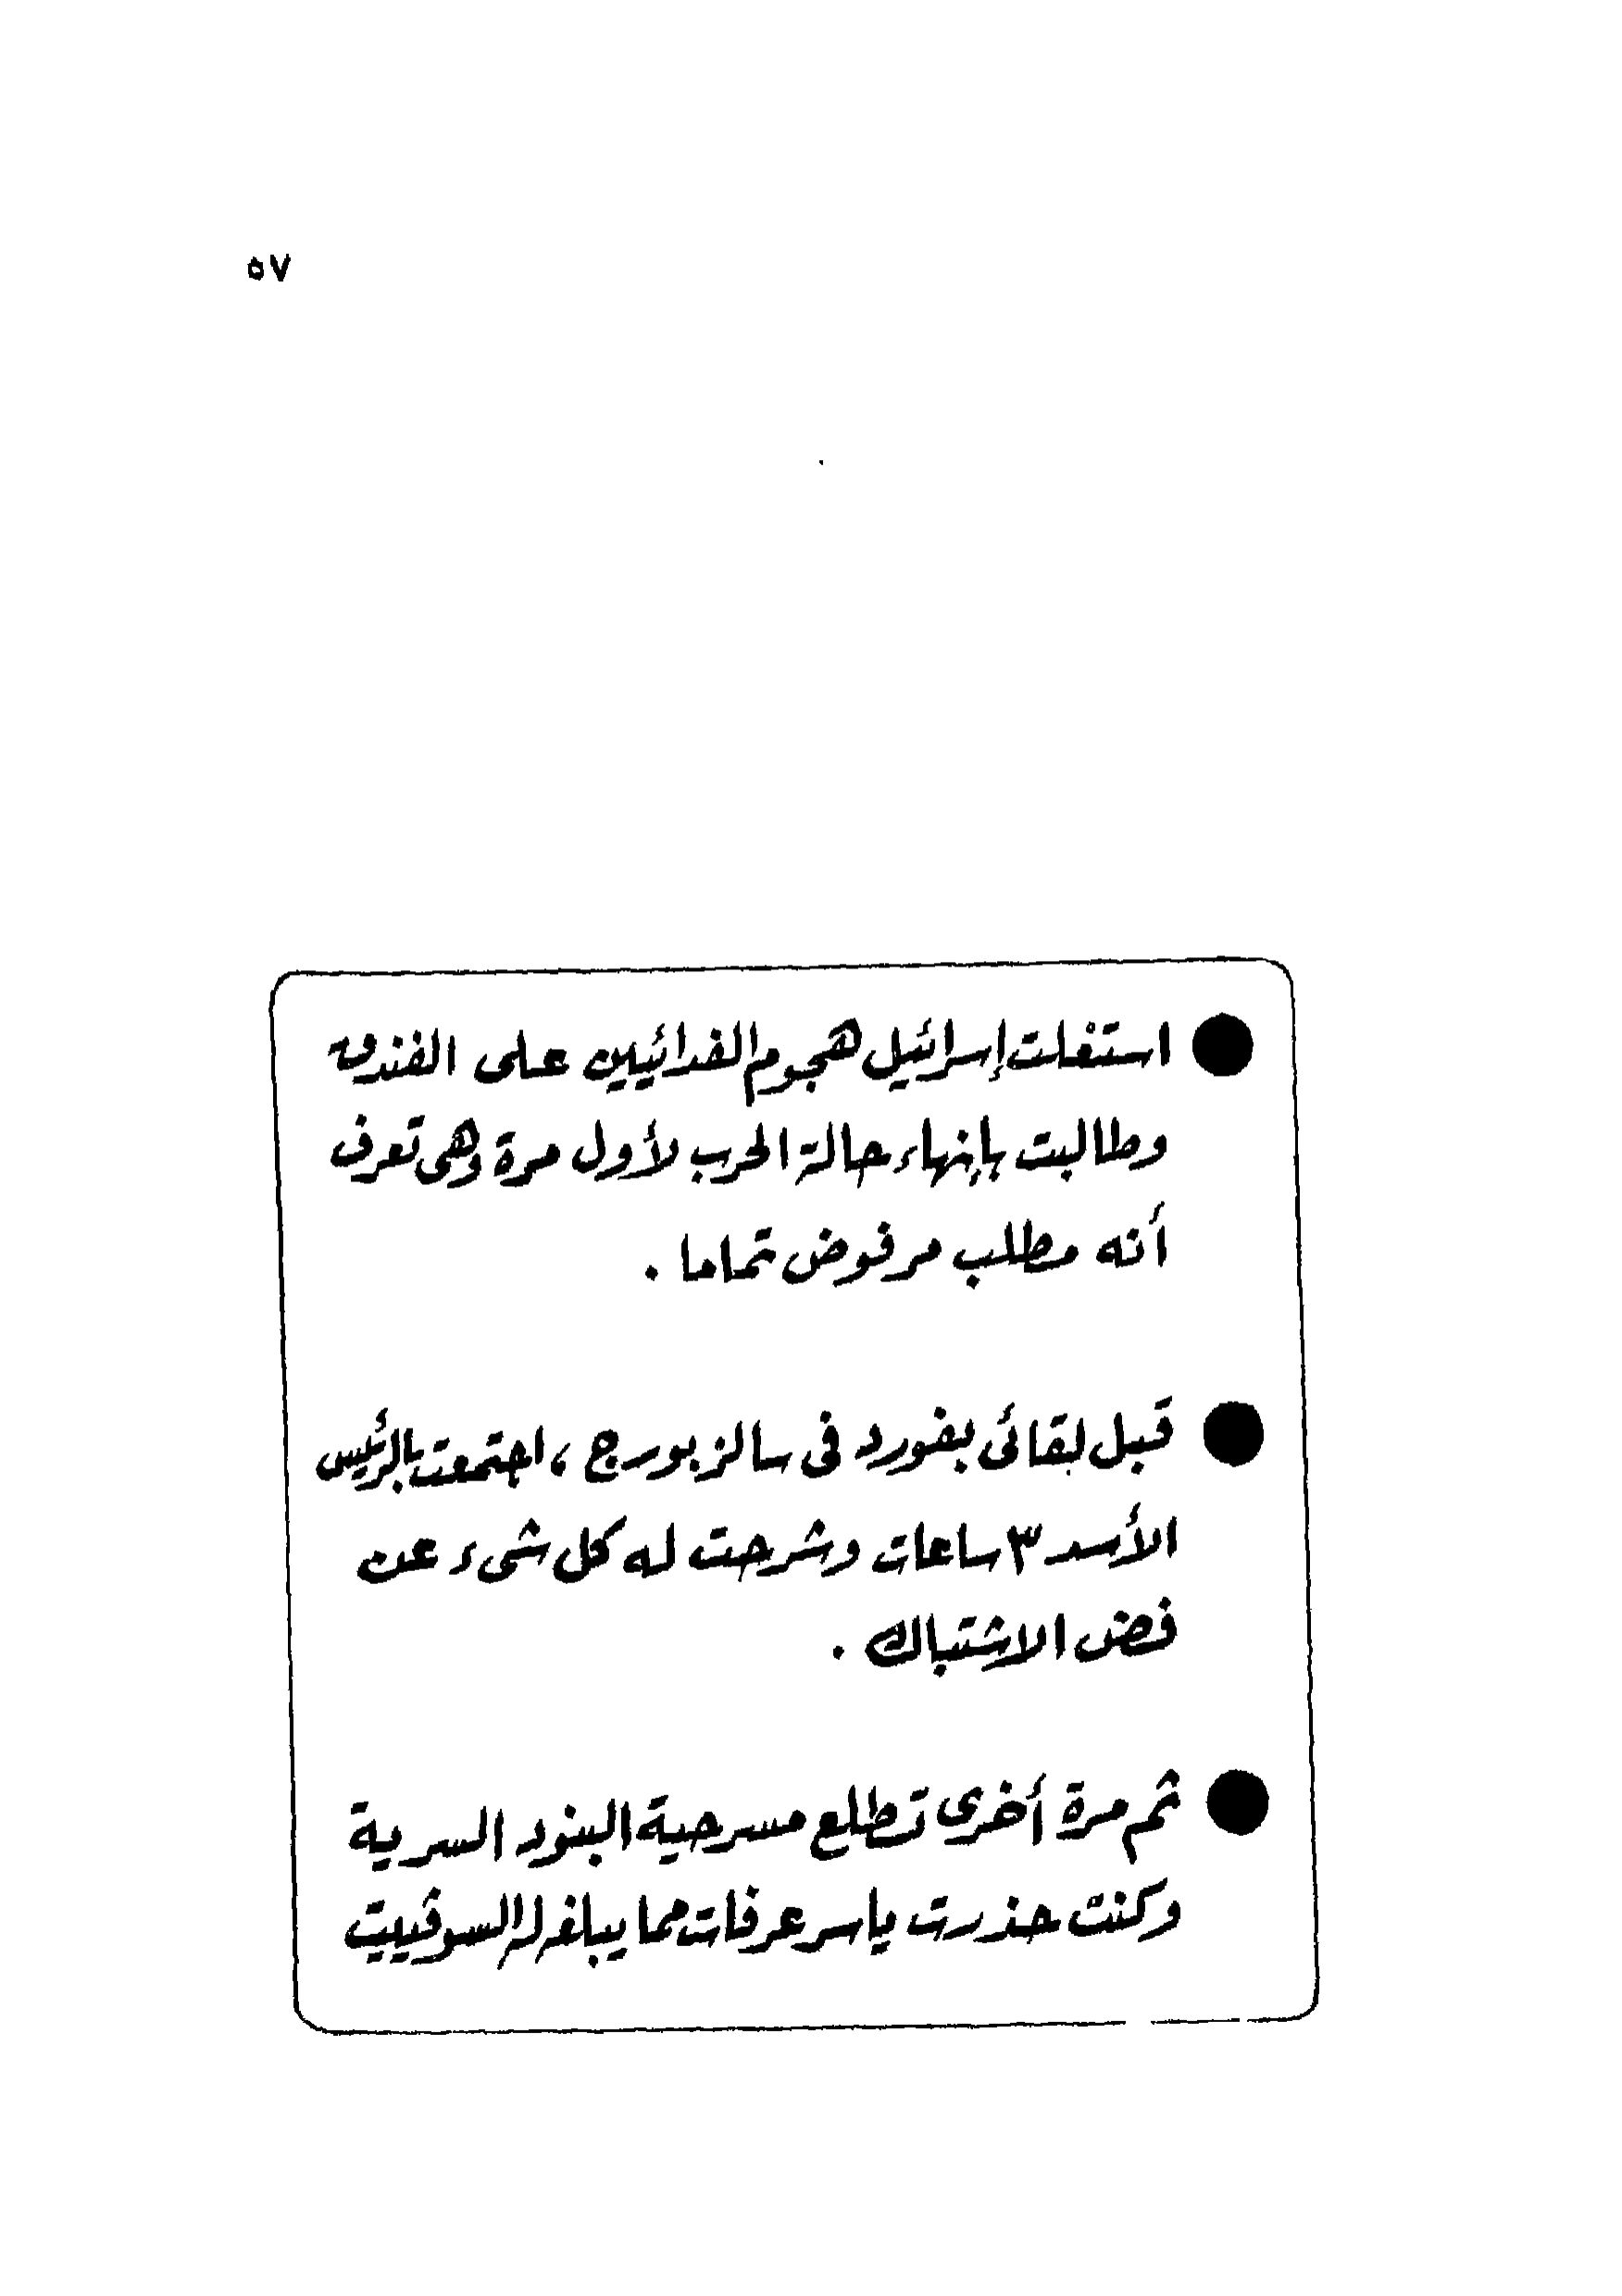 ٥٧
● استغلت إسرائيل هجوم الفدائيين على الفندق
وطالبت بإنهاء حالة الحرب لأول مرة وهى تعرف
أنه مطلب مرفوض تماما .
● قبل لقائى بفورد فى سالزبورج ، اجتمعت بالرئيس
الأسد ٣ ساعات وشرحت له كل شىء عن
فض الاشتباك .
● ثم مرة أخرى تطلع مسرحية البنود السرية
وكنت حذرت ياسر عرفات مما يبلغه له السوفييت